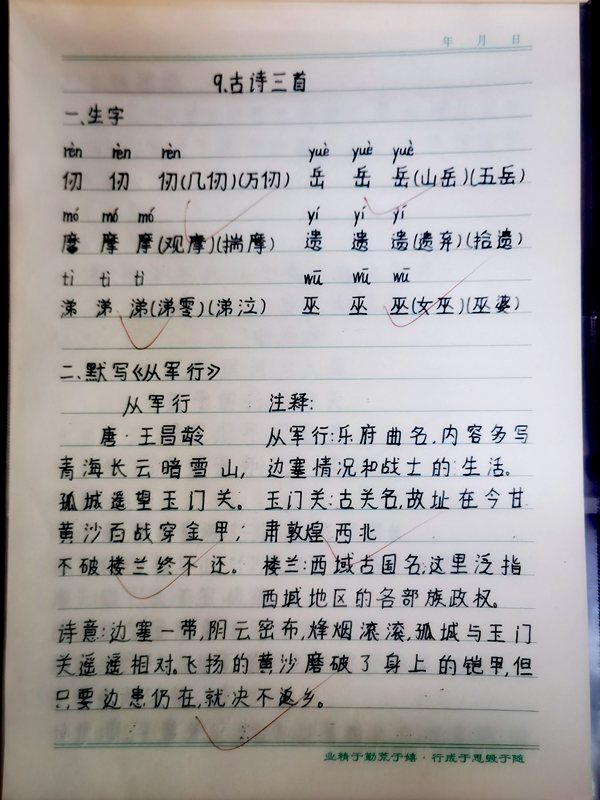 年 月 日
9.古诗三首
一、生字
rèn rèn rèn yuè yuè yuè
仞 仞 仞(几仞)(万仞) 岳 岳 岳(山岳)(五岳)
mó mó mó yí yí yí
摩 摩 摩(观摩)(揣摩) 遗 遗 遗(遗弃)(拾遗)
tì tì tì wū wū wū
涕 涕 涕(涕零)(涕泣) 巫 巫 巫(女巫)(巫婆)
二、默写《从军行》
从军行 注释:
唐·王昌龄 从军行:乐府曲名,内容多写
青海长云暗雪山, 边塞情况和战士的生活。
孤城遥望玉门关。 玉门关:古关名,故址在今甘
黄沙百战穿金甲, 肃敦煌西北
不破楼兰终不还。 楼兰:西域古国名,这里泛指
西域地区的各部族政权。
诗意:边塞一带,阴云密布,烽烟滚滚,孤城与玉门
关遥遥相对。飞扬的黄沙磨破了身上的铠甲,但
只要边患仍在,就决不返乡。
业精于勤荒于嬉·行成于思毁于随